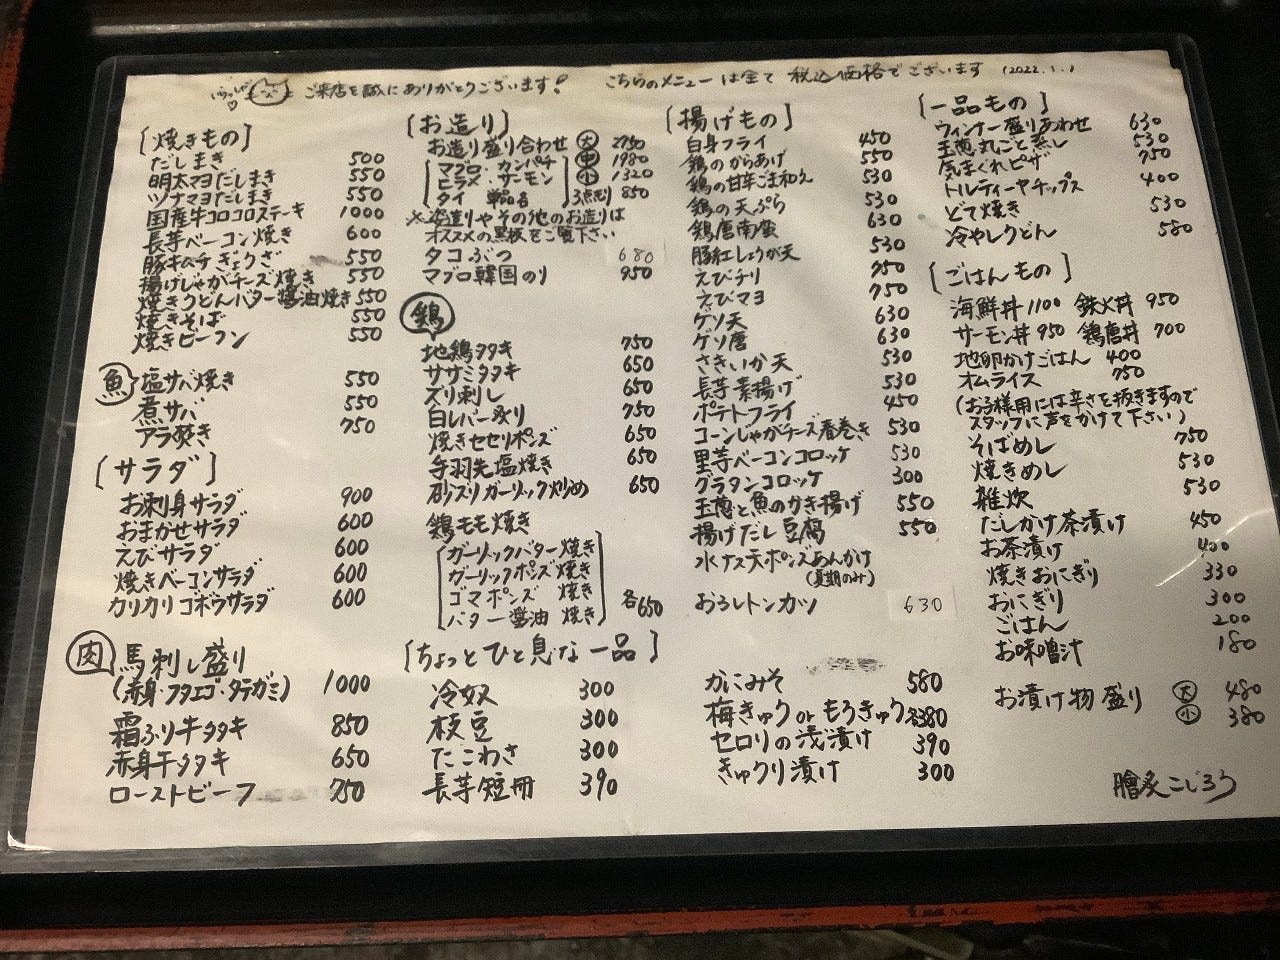 いらっしゃい ご来店を誠にありがとうございます! こちらのメニューは全て税込価格でございます (2022.1.)
[焼きもの]
だしまき 500
明太マヨだしまき 550
ツナマヨだしまき 550
国産牛コロコロステーキ 1000
長芋ベーコン焼き 600
豚キムチぎょうざ 550
揚げじゃがチーズ焼き 550
焼きうどんバター醤油焼き 550
焼きそば 550
焼きビーフン 550
魚
塩サバ焼き 550
煮サバ 550
アラ炊き 750
[サラダ]
お刺身サラダ 900
おまかせサラダ 600
えびサラダ 600
焼きベーコンサラダ 600
カリカリゴボウサラダ 600
肉
馬刺し盛り
(赤身・フタエゴ・タテガミ) 1000
霜ふり牛タタキ 850
赤身牛タタキ 650
ローストビーフ 750
[お造り]
お造り盛り合わせ 大 2750
マグロ・カンパチ 中 1980
ヒラメ・サーモン 小 1320
タイ 単品各 3点盛り 850
※姿造りやその他のお造りは
オススメの黒板をご覧下さい
タコぶつ 680
マグロ韓国のり 950
鶏
地鶏タタキ 750
ササミタタキ 650
ズリ刺し 650
白レバー炙り 750
焼きセセリポンズ 650
手羽先塩焼き 650
砂ズリガーリック炒め 650
鶏モモ焼き
ガーリックバター焼き
ガーリックポンズ焼き
ゴマポンズ 焼き
バター醤油 焼き
各650
[ちょっとひと息な一品]
冷奴 300
枝豆 300
たこわさ 300
長芋短冊 390
かにみそ 580
梅きゅうorもろきゅう 380
セロリの浅漬け 390
きゅうり漬け 300
[揚げもの]
白身フライ 450
鶏のからあげ 550
鶏の甘辛ごま和え 530
鶏の天ぷら 530
鶏唐南蛮 630
豚紅しょうが天 530
えびチリ 750
えびマヨ 750
ゲソ天 630
ゲソ唐 630
さきいか天 530
長芋素揚げ 530
ポテトフライ 450
コーンじゃがチーズ春巻き 530
里芋ベーコンコロッケ 530
グラタンコロッケ 300
玉葱と魚のかき揚げ 550
揚げだし豆腐 550
水ナス天ポンズあんかけ
(夏期のみ)
おろしトンカツ 630
[一品もの]
ウィンナー盛りあわせ 630
玉葱丸ごと蒸し 530
気まぐれピザ 750
トルティーヤチップス 400
どて焼き 530
冷やしうどん 580
[ごはんもの]
海鮮丼 1100 鉄火丼 950
サーモン丼 950 鶏唐丼 700
地卵かけごはん 400
オムライス 750
(お子様用には辛さを抜きますので
スタッフに声をかけて下さい)
そばめし 750
焼きめし 530
雑炊 530
だしかけ茶漬け 450
お茶漬け 400
焼きおにぎり 330
おにぎり 300
ごはん 200
お味噌汁 180
お漬け物盛り 大 480
小 380
膾炙こじろう